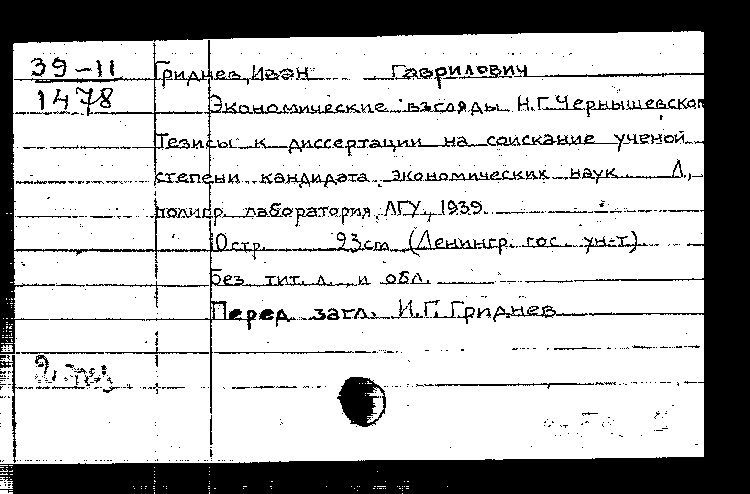 39-11
1478
Гриднев, Иван Гаврилович
Экономические взгляды Н.Г.Чернышевског
Тезисы к диссертации на соискание ученой
степени кандидата экономических наук Л,
полигр. лаборатория ЛГУ, 1939
10стр. 23см (Ленингр. гос. ун-т)
Без тит. л. и обл.
Перед загл. И.Г. Гриднев